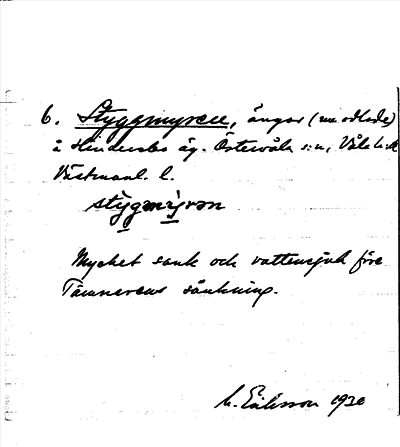 6. Styggmyren, ängar (nu odlade)
å Hindersbo äg. Östervåla s:n, Våla h:d
Västmanl. l.
stỳgmy̆rən
Mycket sank och vattensjuk före
Tämnarens sänkning.
M. Eriksson 1930